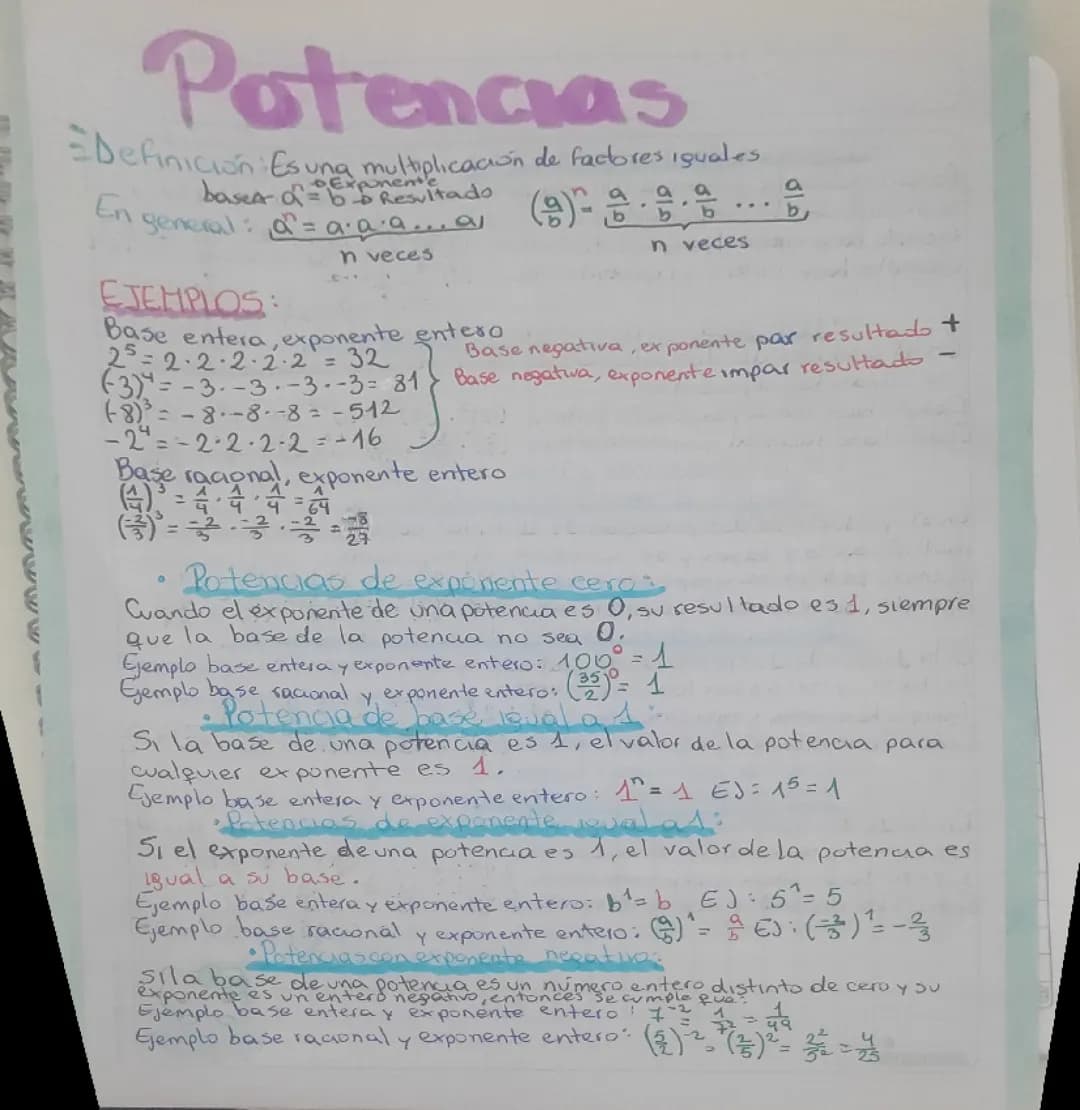 Potencias
Definición: Es una multiplicación de factores iguales
base← aⁿ = b → Resultado → Exponente
En general: aⁿ = a·a·a...a (a/b)ⁿ = a/b · a/b · a/b ... a/b
n veces n veces
EJEMPLOS:
Base entera, exponente entero
2⁵ = 2·2·2·2·2 = 32 Base negativa, exponente par resultado +
(-3)⁴ = -3·-3·-3·-3 = 81 Base negativa, exponente impar resultado -
(-8)³ = -8·-8·-8 = -512
-2⁴ = -2·2·2·2 = -16
Base racional, exponente entero
(1/4)³ = 1/4 · 1/4 · 1/4 = 1/64
(-2/3)³ = -2/3 · -2/3 · -2/3 = -8/27
• Potencias de exponente cero:
Cuando el exponente de una potencia es 0, su resultado es 1, siempre
que la base de la potencia no sea 0.
Ejemplo base entera y exponente entero: 100⁰ = 1
Ejemplo base racional y exponente entero: (35/2)⁰ = 1
• Potencia de base igual a 1:
Si la base de una potencia es 1, el valor de la potencia para
cualquier exponente es 1.
Ejemplo base entera y exponente entero: 1ⁿ = 1 EJ: 1⁵ = 1
• Potencias de exponente igual a 1:
Si el exponente de una potencia es 1, el valor de la potencia es
igual a su base.
Ejemplo base entera y exponente entero: b¹ = b EJ: 5¹ = 5
Ejemplo base racional y exponente entero: (a/b)¹ = a/b EJ: (-2/3)¹ = -2/3
• Potencias con exponente negativo:
Si la base de una potencia es un número entero distinto de cero y su
exponente es un entero negativo, entonces se cumple que:
Ejemplo base entera y exponente entero: 7⁻² = 1/7² = 1/49
Ejemplo base racional y exponente entero: (5/2)⁻² = (2/5)² = 2²/5² = 4/25